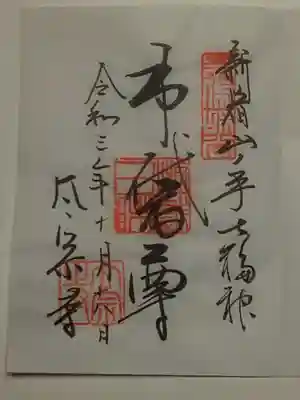 新宿山ノ手七福神
布袋尊
令和三年十月六日
太宗寺